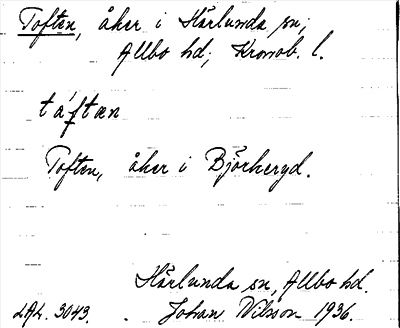 Toften, åker i Härlunda sn;
Allbo hd; Kronob. l.
táftən
Toften, åker i Björkeryd.
Härlunda sn, Allbo hd.
LAL. 3043. Johan Nilsson 1936.